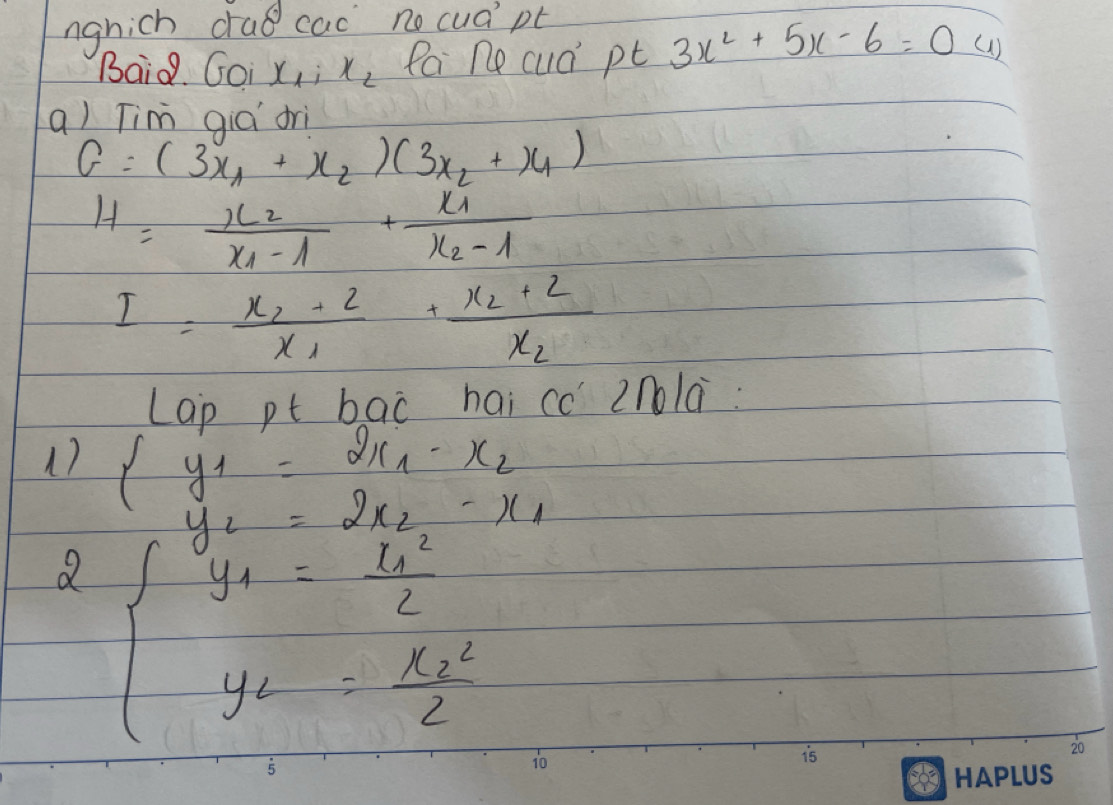 nghịch đảo các no của pt
Bài 2. Gọi x₁; x₂ là no của pt 3x² + 5x - 6 = 0 (1)
a) Tìm giá trị
G = (3x₁ + x₂)(3x₂ + x₁)
H = x₂/(x₁ - 1) + x₁/(x₂ - 1)
I = (x₂ + 2)/x₁ + (x₂ + 2)/x₂
Lập pt bậc hai có 2 no là :
1) { y₁ = 2x₁ - x₂
y₂ = 2x₂ - x₁
2 { y₁ = x₁²/2
y₂ = x₂²/2
5 10 15 20
HAPLUS